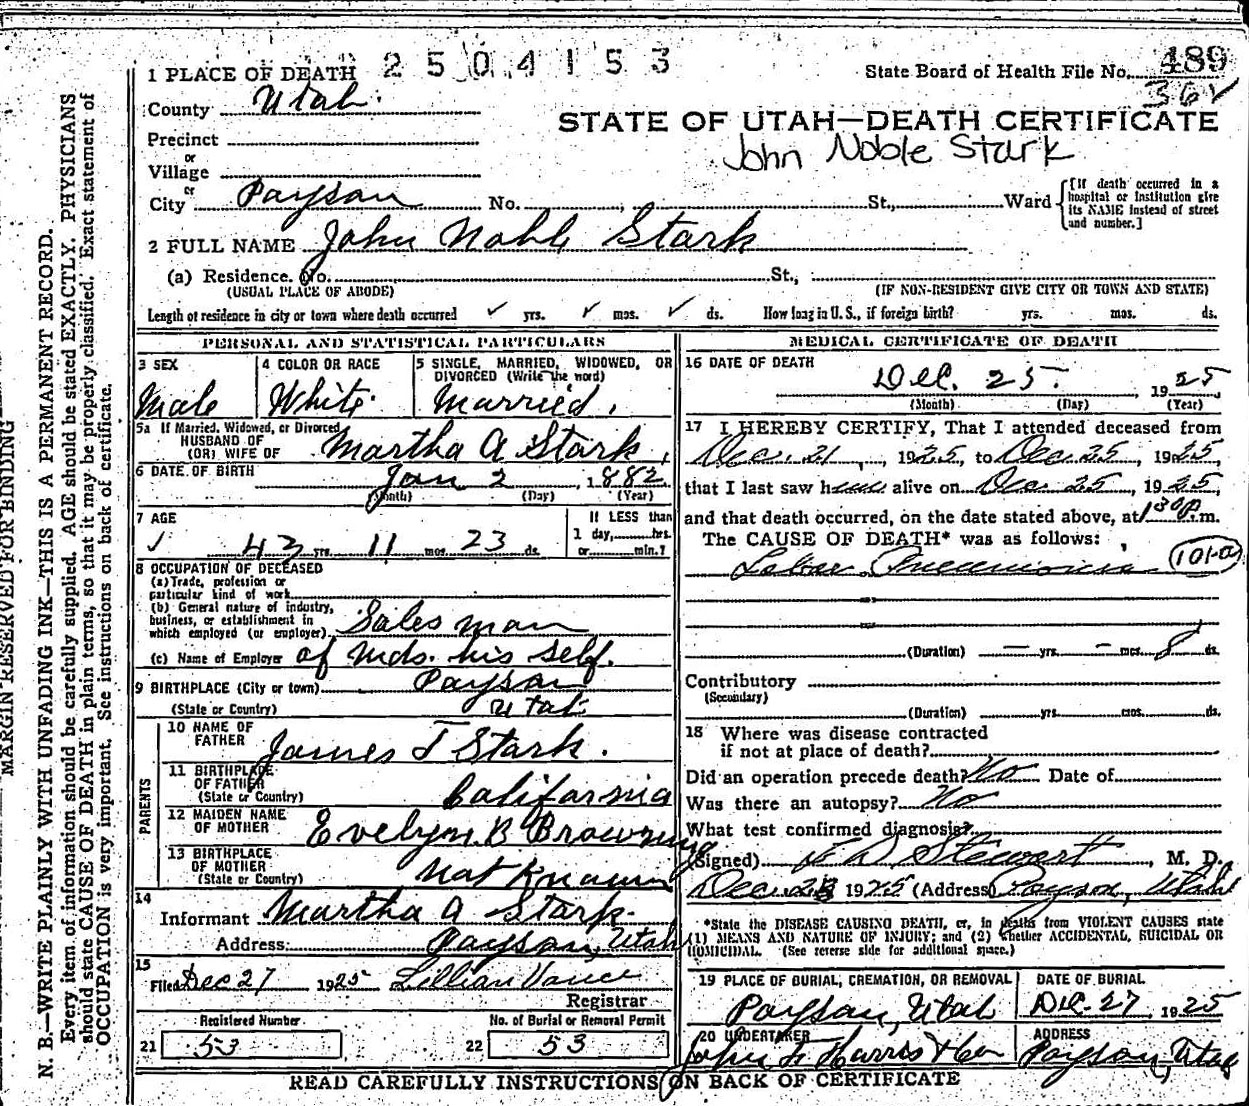 2504153
State Board of Health File No. 489
36 V
1 PLACE OF DEATH
County Utah.
STATE OF UTAH—DEATH CERTIFICATE
John Noble Stark
Precinct
or
Village
or
City Payson No. , St., Ward
[If death occurred in a
hospital or institution give
its NAME instead of street
and number.]
2 FULL NAME John Noble Stark
(a) Residence. No. St.,
(USUAL PLACE OF ABODE) (IF NON-RESIDENT GIVE CITY OR TOWN AND STATE)
Length of residence in city or town where death occurred ✓ yrs. ✓ mos. ✓ ds. How long in U. S., if foreign birth? yrs. mos. ds.
PERSONAL AND STATISTICAL PARTICULARS
3 SEX
Male
4 COLOR OR RACE
White
5 SINGLE, MARRIED, WIDOWED, OR
DIVORCED (Write the word)
Married,
5a If Married, Widowed, or Divorced
HUSBAND OF
(OR) WIFE OF Martha A Stark,
6 DATE OF BIRTH Jan 2, 1882
(Month) (Day) (Year)
7 AGE
✓ 43 yrs. 11 mos. 23 ds.
If LESS than
1 day, hrs.
or min.?
8 OCCUPATION OF DECEASED
(a) Trade, profession or
particular kind of work
(b) General nature of industry,
business, or establishment in
which employed (or employer) Sales man
(c) Name of Employer of mds. his self.
9 BIRTHPLACE (City or town) Payson
(State or Country) Utah
PARENTS
10 NAME OF
FATHER James T Stark.
11 BIRTHPLACE
OF FATHER
(State or Country) California
12 MAIDEN NAME
OF MOTHER Evelyn. B Browning
13 BIRTHPLACE
OF MOTHER
(State or Country) Not Known
14
Informant Martha A Stark.
Address Payson, Utah
15
Filed Dec 27 1925 Lillian Vance
Registrar
Registered Number
21 53
No. of Burial or Removal Permit
22 53
MEDICAL CERTIFICATE OF DEATH
16 DATE OF DEATH
Dec. 25. 1925
(Month) (Day) (Year)
17 I HEREBY CERTIFY, That I attended deceased from
Dec. 21, 1925, to Dec 25, 1925,
that I last saw him alive on Dec 25, 1925,
and that death occurred, on the date stated above, at 1 30 P. m.
The CAUSE OF DEATH* was as follows:
Lobar Pneumonia 101-a
(Duration) — yrs. — mos. 8 ds.
Contributory
(Secondary)
(Duration) yrs. mos. ds.
18 Where was disease contracted
if not at place of death?
Did an operation precede death? No Date of
Was there an autopsy? No
What test confirmed diagnosis?
(Signed) Stewart, M. D.
1925 (Address) Payson, Utah
*State the DISEASE CAUSING DEATH, or, in deaths from VIOLENT CAUSES state
(1) MEANS AND NATURE OF INJURY; and (2) whether ACCIDENTAL, SUICIDAL OR
HOMICIDAL. (See reverse side for additional space.)
19 PLACE OF BURIAL, CREMATION, OR REMOVAL
Payson, Utah
DATE OF BURIAL
Dec. 27 1925
20 UNDERTAKER
John F Harris & Co
ADDRESS
Payson, Utah
READ CAREFULLY INSTRUCTIONS ON BACK OF CERTIFICATE
MARGIN RESERVED FOR BINDING
N. B.—WRITE PLAINLY WITH UNFADING INK—THIS IS A PERMANENT RECORD.
Every item of information should be carefully supplied. AGE should be stated EXACTLY. PHYSICIANS
should state CAUSE OF DEATH in plain terms, so that it may be properly classified. Exact statement of
OCCUPATION is very important. See instructions on back of certificate.